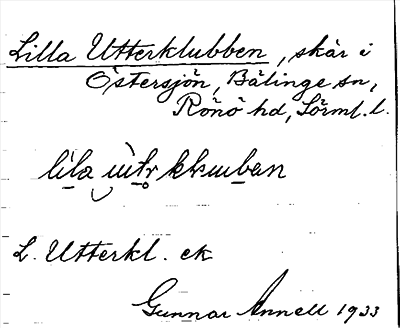 Lilla Utterklubben, skär i
Östersjön, Bälinge sn,
Rönö hd, Sörml. l.
lila
L. Utterkl. ek
Gunnar Annell 1933